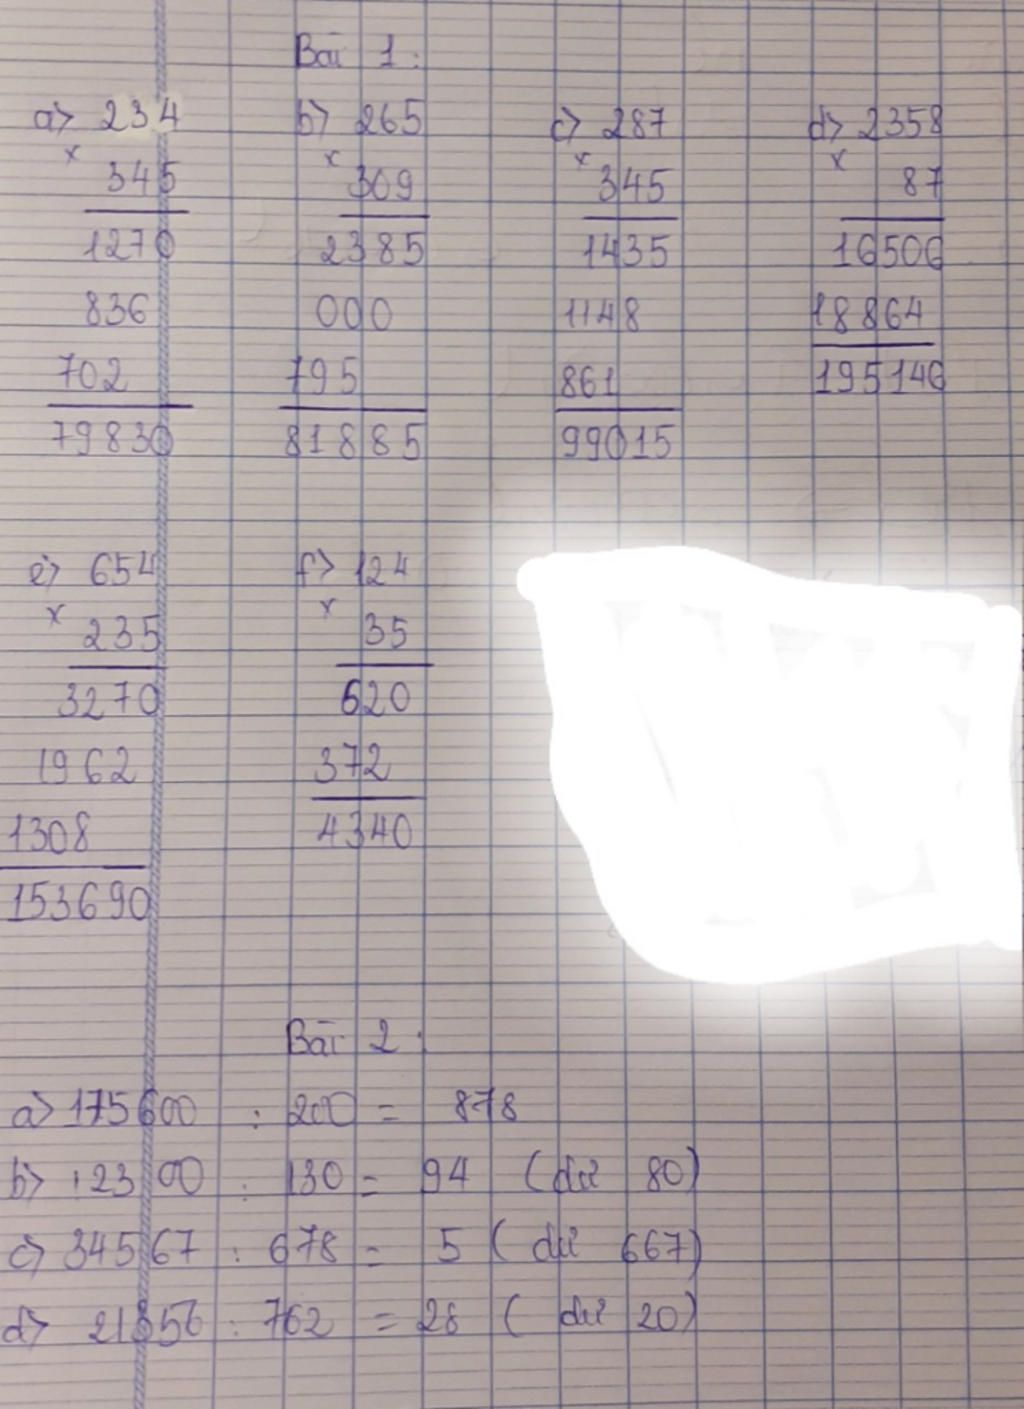 Bài 1:
a) 234 b) 265 c) 287 d) 2358
x 345 x 309 x 345 x 87
1270 2385 1435 16506
836 000 1148 18864
702 795 861 195146
79830 81885 99015
e) 654 f) 124
x 235 x 35
3270 620
1962 372
1308 4340
153690
Bài 2:
a) 175600 : 200 = 878
b) 12300 : 130 = 94 (dư 80)
c) 34567 : 678 = 5 (dư 667)
d) 21356 : 762 = 28 (dư 20)